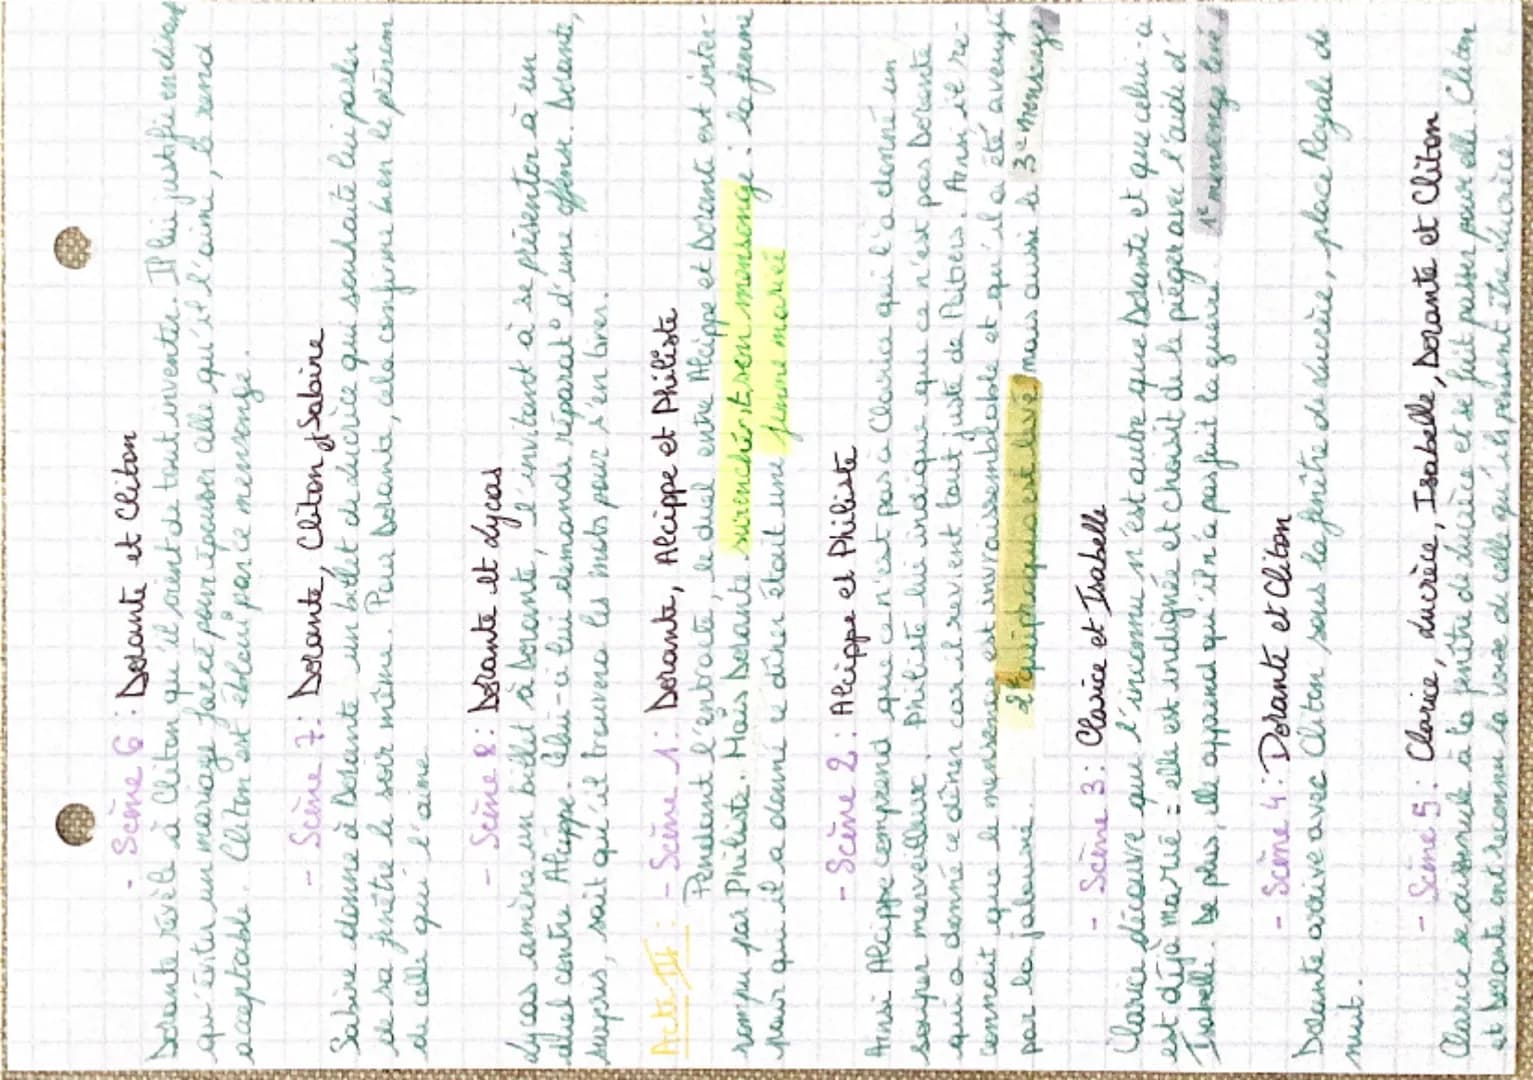 - Scène 6 : Dorante et Cliton
Dorante révèle à Cliton qu'il vient de tout inventer. Il lui justifie en disant
qu'éviter un mariage forcé pour épouser celle qu'il l'aime, le rend
acceptable. Cliton est ébloui par ce mensonge.
- Scène 7 : Dorante, Cliton, Sabine
Sabine donne à Dorante un billet de Lucrèce qui souhaite lui parler
de sa fenêtre le soir même. Pour Dorante, cela confirme bien le prénom
de celle qu'il aime
- Scène 8 : Dorante et Lycas
Lycas amène un billet à Dorante, l'invitant à se présenter à un
duel contre Alcippe. Celui-ci lui demande réparat° d'une offense. Dorante,
surpris, sait qu'il trouvera les mots pour s'en tirer.
Acte III : - Scène 1 : Dorante, Alcippe et Philiste
Pendant l'entracte, le duel entre Alcippe et Dorante est inter-
rompu par Philiste. Mais Dorante surenchérit son mensonge : la femme
pour qui il a donné ce dîner était une femme mariée
- Scène 2 : Alcippe et Philiste
Ainsi Alcippe comprend que ce n'est pas à Clarice qui l'a donné un
souper merveilleux. Philiste lui indique que ce n'est pas Dorante
qui a donné ce dîner car il revient tout juste de Poitiers. Ainsi il re-
connait que le mensonge est invraisemblable et qu'il a été aveuglé
par la jalousie. 2 équiphaquua est levé mais aussi le 3e mensonge
- Scène 3 : Clarice et Isabelle
Clarice découvre que l'inconnu n'est autre que Dorante et que celui-ci
est déjà marié : elle est indignée et choisit de le piéger avec l'aide d'
Isabelle. De plus, elle apprend qu'il n'a pas fait la guerre. 1e mensonge levé
- Scène 4 : Dorante et Cliton
Dorante arrive avec Cliton sous la fenêtre de Lucrèce, place Royale de
nuit.
- Scène 5 : Clarice, Lucrèce, Isabelle, Dorante et Cliton
Clarice se dissimule à la fenêtre de Lucrèce et se fait passer pour elle. Cliton
et Dorante ont reconnu la voix de celle qu'ils pensent être Lucrèce.